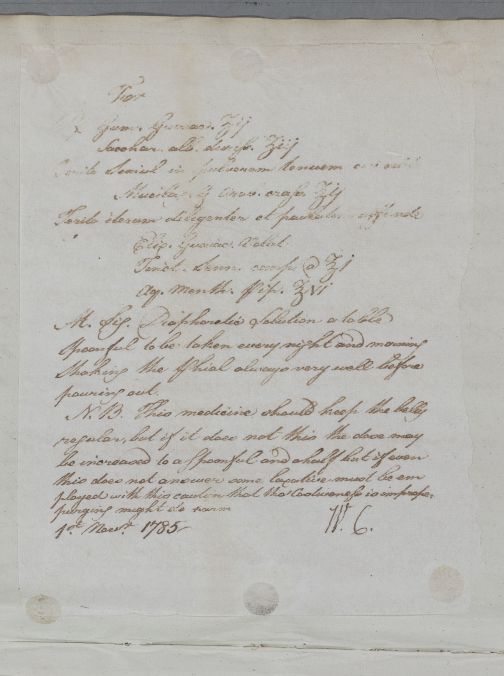 For
Rx Gum. Guaiac. ʒij
Sacchar. alb. ʒij
Terito Simul in pulverem tenuem
Mucilag Arab. ʒij
Terito iterum diligenter et paulatim
Elix. Guaiac. Volat.
Tinct. Senn. comp. a ʒj
Aq. Menth. Pip. ʒvi
M. Sig. Diaphoretic Solution a table
Spoonful to be taken every night and morning
Shaking the Phial always very well before
pouring out.
N.B. This medicine should keep the belly
regular, but if it does not this the dose may
be increased to a spoonful and a half but if even
this does not answer some laxative must be em
ployed with this caution that as Costiveness is improper
purging might do harm
1st Novr. 1785
W. C.